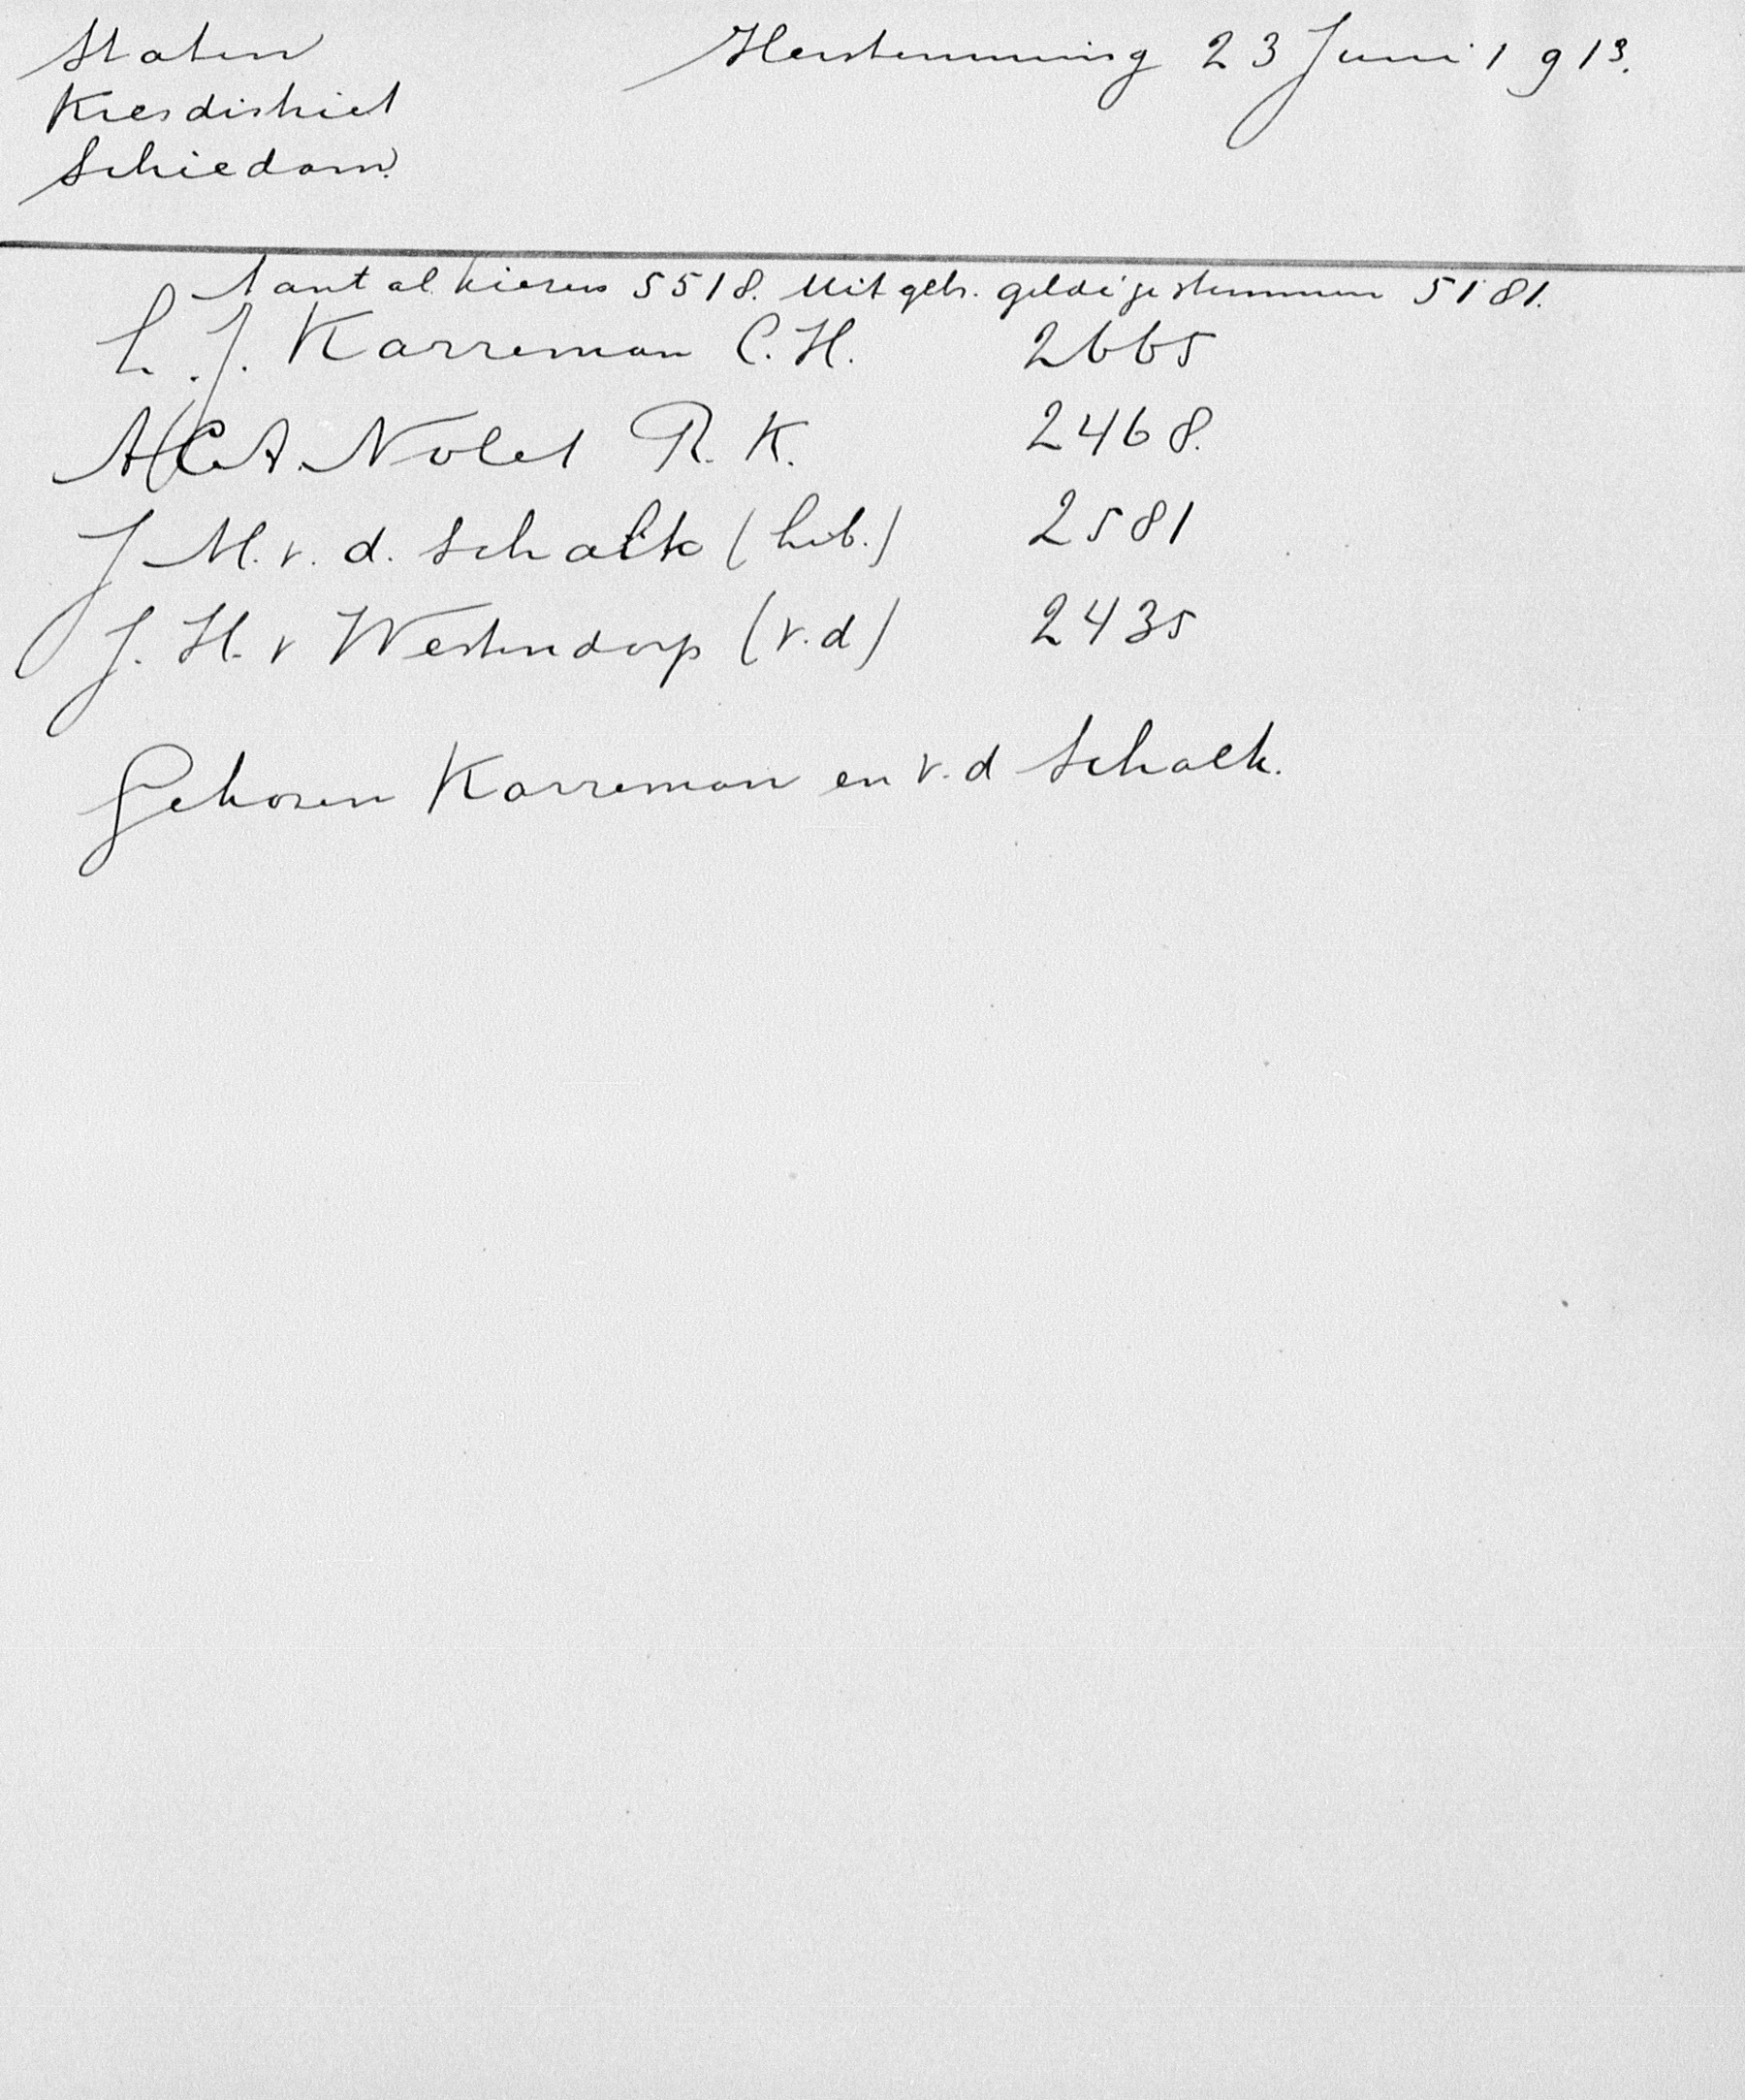 Staten
Herstemming 23 Juni 1913.
Kiesdistrict
Schiedam.
Aantal kiezers 5518. Uitgebr. geldige stemmen 5181.
L. J. Karreman C.H. 2665
A.C.A. Nolet R.K. 2468.
J M. v. d. Schalk (lib.) 2581
J. H. v Westendorp (v.d) 2435
Gekozen Karreman en v.d Schalk.